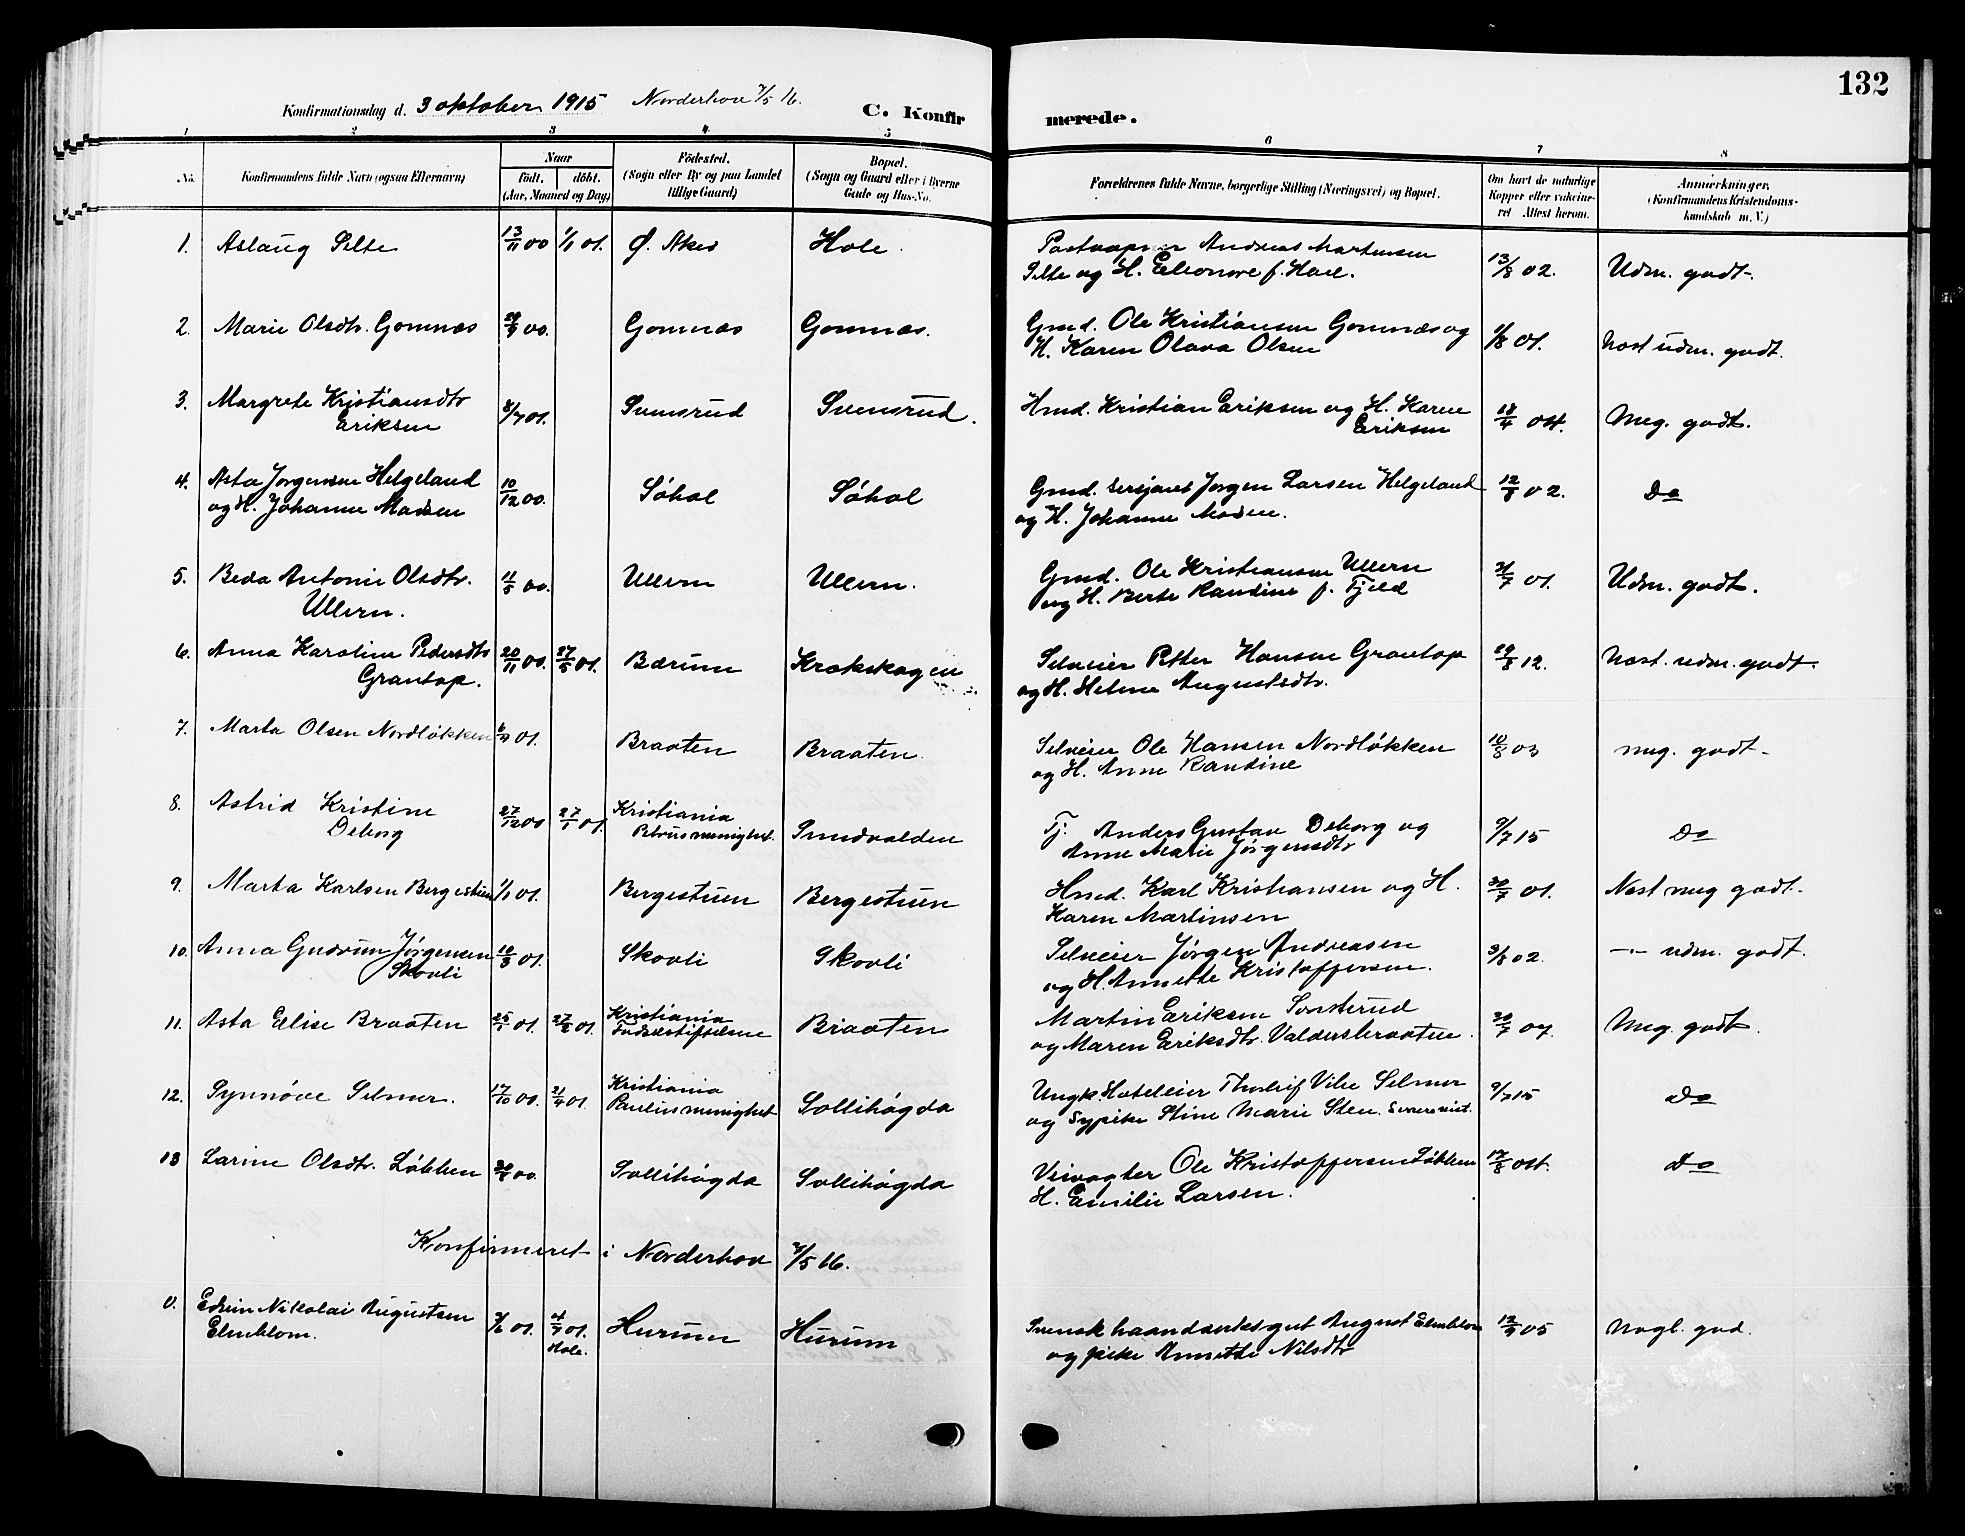 132
Konfirmationsdag d. 3 oktober 1915 Norderhov 7/5 16.
C. Konfirmerede.
1 2 3 4 5 6 7 8
No.
Konfirmandens fulde Navn (ogsaa Efternavn)
Naar
født. døbt.
(Aar, Maaned og Dag)
Födested.
(Sogn eller By og paa Landet
tillige Gaard)
Bopæl.
(Sogn og Gaard eller i Byerne
Gade og Hus-No.
Forældrenes fulde Navne, borgerlige Stilling (Næringsvei) og Bopæl.
Om havt de naturlige
Kopper eller vakcine-
ret Attest herom.
Anmærkninger,
(Konfirmandens Kristendoms-
kundskab m. V.)
1. Aslaug Selte 13/11 00 1/1 01. Ø. Aker Hole. Postaapner Andreas Martensen
Selte og H. Eleonore f. Hoel. 13/8 02. Udm. godt.
2. Marie Olsdtr. Gomnæs 00. Gomnæs Gomnæs. Gmd. Ole Kristiansen Gomnæs og
H. Karen Olava Olsen 1/8 01. Næst udm. godt.
3. Margrete Kristiansdtr
Eriksen 8/7 01. Svensrud Svensrud. Hmd. Kristian Eriksen og H. Karen
Eriksen 18/4 04. Meg. godt.
4. Asta Jørgensen Helgeland
og H. Johanne Madsen 10/12 00. Søhol Søhol Gmd. Sersjant Jørgen Larsen Helgeland
og H. Johanne Madsen. 12/8 02. Do
5. Beda Antonie Olsdtr.
Ullern. 11/5 00. Ullern Ullern. Gmd. Ole Kristiansen Ullern
og H. Berte Randine f. Fjeld 31/7 01. Udm. godt.
6. Anna Karoline Pedersdtr
Grantop. 20/11 00. 27/5 01. Bærum Krokskogen Selveier Petter Hansen Grantop
og H. Helene Augustsdtr. 29/8 12. Næst. udm. godt.
7. Marta Olsen Nordløkken 01. Braaten Braaten. Selveier Ole Hansen Nordløkken
og H. Anne Randine 10/8 03 meg. godt
8. Astrid Kristine
Deborg 27/12 00 27/1 01. Kristiania
Petrus menighet. Sundvolden Tj. Anders Gustav Deborg og
Anne Marie Jørgensdtr 9/7 15 Do
9. Marta Karlsen Bergestuen 1/1 01. Bergestuen Bergestuen Hmd. Karl Kristiansen og H.
Karen Martinsen 30/7 01. Næst meg godt.
10. Anna Gudrun Jørgensen
Skovli 10/3 01. Skovli Skovli Selveier Jørgen Andreasen
og H. Annette Kristoffersen. 9/8 02. —"— udm. godt.
11. Asta Elise Braaten 25/1 01. 27/2 01. Kristiania
Fødselsstiftelsen Braaten Martin Eriksen Sønsterud
og Maren Eriksdtr. Valdersbraaten. 30/7 07. Meg. godt.
12. Synnøve Selmer. 17/10 00. 21/4 01. Kristiania
Paulus menighet Sollihøgda Ungk. Hoteleier Thorleif Vibe Selmer
og Sypike Stine Marie Sten. 9/7 15 Do
13 Larine Olsdtr. Løbben 00. Sollihøgda Sollihøgda Veivogter Ole Kristoffersen Løbben
H. Emilie Larsen. 17/8 04. Do
Konfirmeret i Norderhov 7/5 16.
0. Edvin Nikolai Augustsen
Elmblom. 01. 21/7 01.
Hole. Hurum Hurum Svensk haandverksgut August Elmblom
og pike Annette Nilsdtr 12/9 05 Nogl. god.